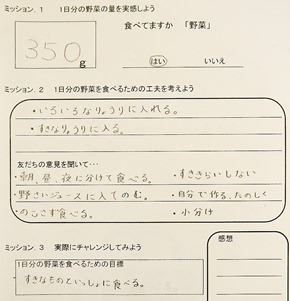 ミッション. 1　1日分の野菜の量を実感しよう
食べてますか　「野菜」
350g
はい　いいえ
ミッション. 2　1日分の野菜を食べるための工夫を考えよう
・いろいろなりょうりに入れる。
・すきなりょうりに入る。
友だちの意見を聞いて・・・
・朝、昼、夜に分けて食べる。　・すききらいしない
・野さいジュースに入てのむ。　・自分で作る、たのしく
・のこさず食べる。　・小分け
ミッション. 3　実際にチャレンジしてみよう
感想
1日分の野菜を食べるための目標
すきなものといっしょに食べる。